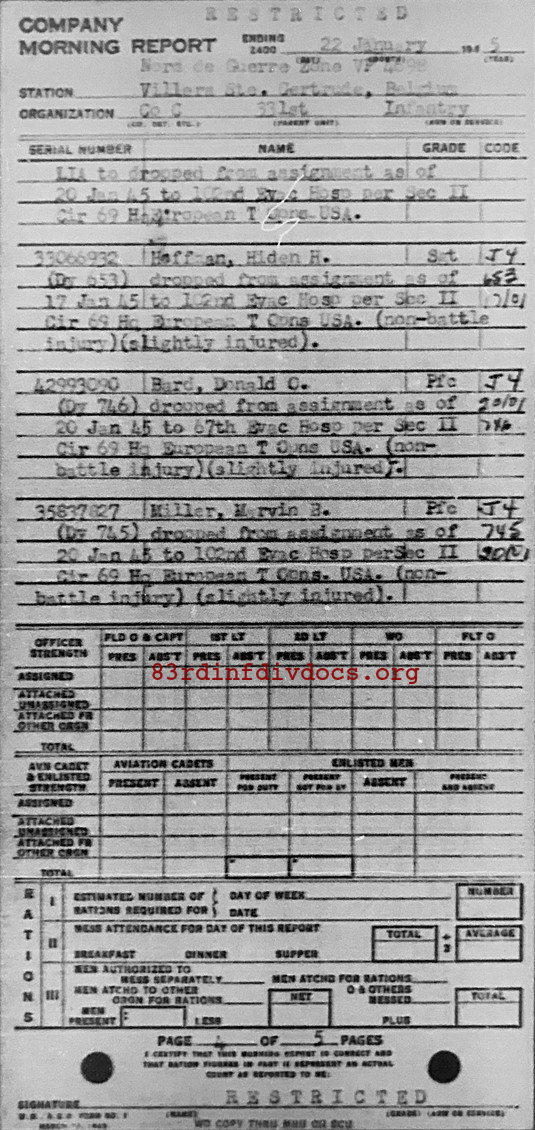 RESTRICTED
COMPANY
MORNING REPORT ENDING 2400 22 January 1945
(DAY) (MONTH) (YEAR)
Nord de Guerre Zone VF 4898
STATION Villers Ste. Gertrude, Belgium
ORGANIZATION Co C 331st Infantry
(CO. DET. ETC.) (PARENT UNIT) (ARM OR SERVICE)
SERIAL NUMBER NAME GRADE CODE
LIA to dropped from assignment as of
20 Jan 45 to 102nd Evac Hosp per Sec II
Cir 69 Hq European T Opns USA.
33066932 Hoffman, Hiden H. Sgt J4
(Dy 653) dropped from assignment as of 653
17 Jan 45 to 102nd Evac Hosp per Sec II
Cir 69 Hq European T Opns USA. (non-battle
injury)(slightly injured).
42993090 Bard, Donald C. Pfc J4
(Dy 746) dropped from assignment as of
20 Jan 45 to 67th Evac Hosp per Sec II 746
Cir 69 Hq European T Opns USA. (non-
battle injury)(slightly injured).
35837827 Miller, Marvin B. Pfc J4
(Dy 745) dropped from assignment as of 745
20 Jan 45 to 102nd Evac Hosp perSec II
Cir 69 Hq European T Opns. USA. (non-
battle injury) (slightly injured).
OFFICER STRENGTH FLD O & CAPT 1ST LT 2D LT WO FLT O
PRES ABS'T PRES ABS'T PRES ABS'T PRES ABS'T PRES ABS'T
ASSIGNED
83rdinfdivdocs.org
ATTACHED UNASSIGNED
ATTACHED FR OTHER ORGN
TOTAL
AVN CADET & ENLISTED STRENGTH AVIATION CADETS ENLISTED MEN
PRESENT ABSENT PRESENT FOR DUTY PRESENT NOT FOR DY ABSENT PRESENT AND ABSENT
ASSIGNED
ATTACHED UNASSIGNED
ATTACHED FR OTHER ORGN
TOTAL
RATIONS
I ESTIMATED NUMBER OF RATIONS REQUIRED FOR DAY OF WEEK DATE NUMBER
II MESS ATTENDANCE FOR DAY OF THIS REPORT TOTAL ÷ 3 AVERAGE
BREAKFAST DINNER SUPPER
III MEN AUTHORIZED TO MESS SEPARATELY MEN ATCHD FOR RATIONS
MEN ATCHD TO OTHER ORGN FOR RATIONS NET O & OTHERS MESSED TOTAL
MEN PRESENT LESS PLUS
PAGE 4 OF 5 PAGES
I CERTIFY THAT THIS MORNING REPORT IS CORRECT AND
THAT RATION FIGURES IN PART II REPRESENT AN ACTUAL
COUNT AS REPORTED TO ME:
RESTRICTED
SIGNATURE
(NAME) (GRADE) (ARM OR SERVICE)
WD COPY THRU MRU OR SCU